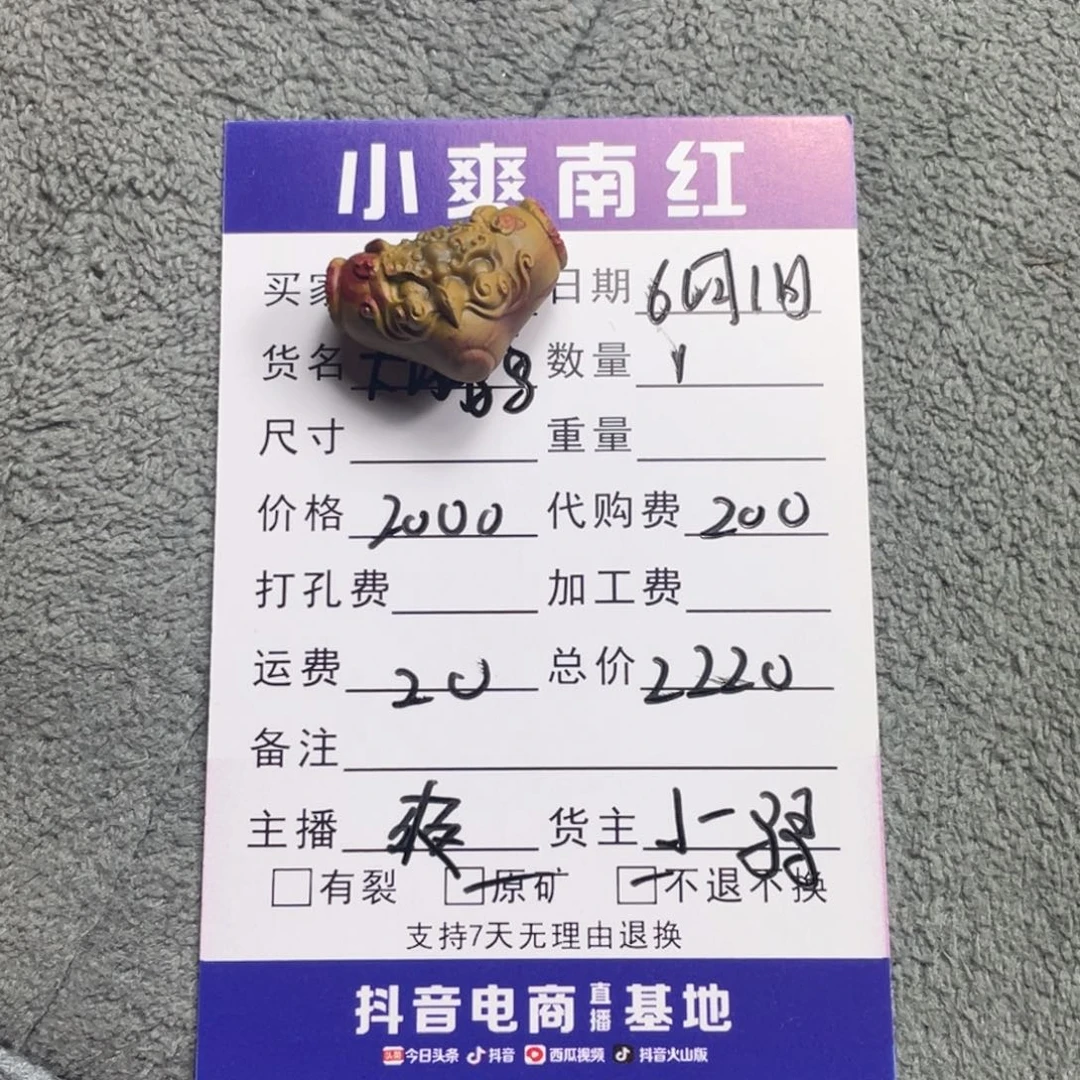 小爽南红
买家 日期 6月1日
货名 数量 1
尺寸 重量
价格 2000 代购费 200
打孔费 加工费
运费 20 总价 2220
备注
主播 爽 货主 小
有裂 原矿 不退不换
支持7天无理由退换
抖音电商直播基地
头条 今日头条 抖音 西瓜视频 抖音火山版